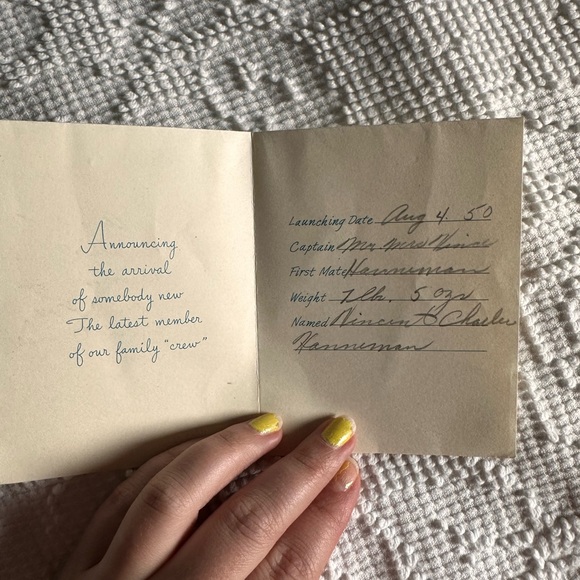 Announcing
the arrival
of somebody new
The latest member
of our family "crew"
Launching Date Aug 4. 50
Captain Mr Mrs Vince
First Mate Hanneman
Weight 7 lb. 5 ozs
Named Vincent Charles
Hanneman